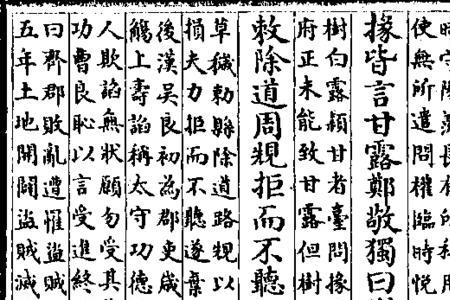 使無所遣問權臨時悅
掾皆言甘露鄭敬獨曰
樹白露頴甘者臺問掾
府正未能致甘露但樹
敕除道周規拒而不聽
草穢勑縣除道路規以
損夫力拒而不聽遂棄
後漢吳良初為郡吏歲
觴上壽諂稱太守功德
人欺諂無狀願勿受其
功曹良恥以言受進終
曰齊郡敗亂遭罹盜賊
五年土地開闢盜賊滅